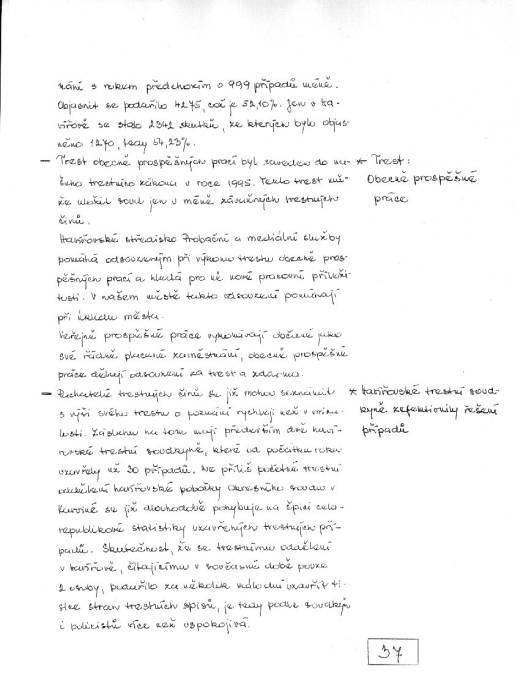 nání s rokem předchozím o 999 případů méně.
Objasnit se podařilo 4275, což je 52,10%. Jen v Ha-
vířově se stalo 2342 skutků, ze kterých bylo objas-
něno 1270, tedy 54,23%.
– Trest obecně prospěšných prací byl zaveden do na-
šeho trestního zákona v roce 1995. Tento trest mů-
že uložit soud jen u méně závažných trestných
činů.
Havířovské středisko Probační a mediační služby
pomáhá odsouzeným při výkonu trestu obecně pros-
pěšných prací a hledá pro ně nové pracovní příleži-
tosti. V našem městě takto odsouzení pomáhají
při úklidu města.
Veřejně prospěšné práce vykonávají občané jako
své řádně placené zaměstnání, obecně prospěšné
práce dělají odsouzení za trest a zdarma.
– Pachatelé trestných činů se již mohou seznámit
s výší svého trestu o poznání rychleji než v minu-
losti. Zásluhu na tom mají především dvě haví-
řovské trestní soudkyně, které od počátku roku
uzavřely už 30 případů. Ne příliš početné trestní
oddělení havířovské pobočky Okresního soudu v
Karviné se již dlouhodobě pohybuje na špici celo-
republikové statistiky uzavřených trestných pří-
padů. Skutečnost, že se trestnímu oddělení
v Havířově, čítajícímu v současné době pouze
2 osoby, podařilo za několik málo dní uzavřít ti-
síce stran trestních spisů, je tedy podle soudkyň
i policistů více než uspokojivá.
* Trest:
Obecně prospěšné
práce
* Havířovské trestní soud-
kyně zefektivnily řešení
případů
37